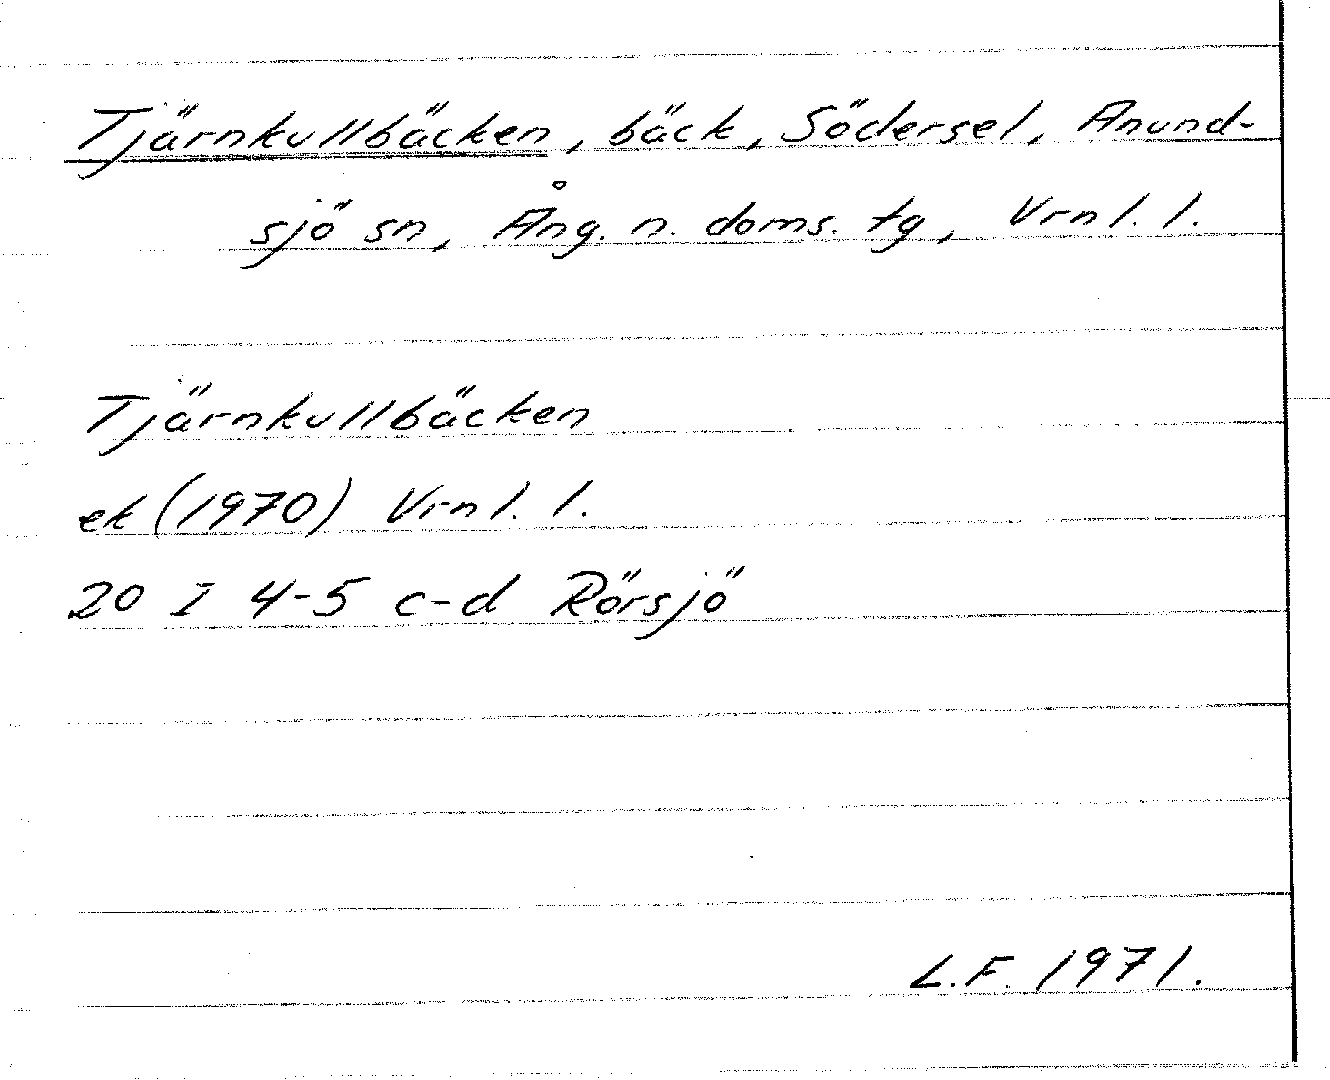 Tjärnkullbäcken, bäck, Södersel, Anund-
sjö sn, Ång. n. doms. tg, Vrnl. l.
Tjärnkullbäcken
ek (1970) Vrnl. l.
20 I 4-5 c-d Rörsjö
L.F. 1971.